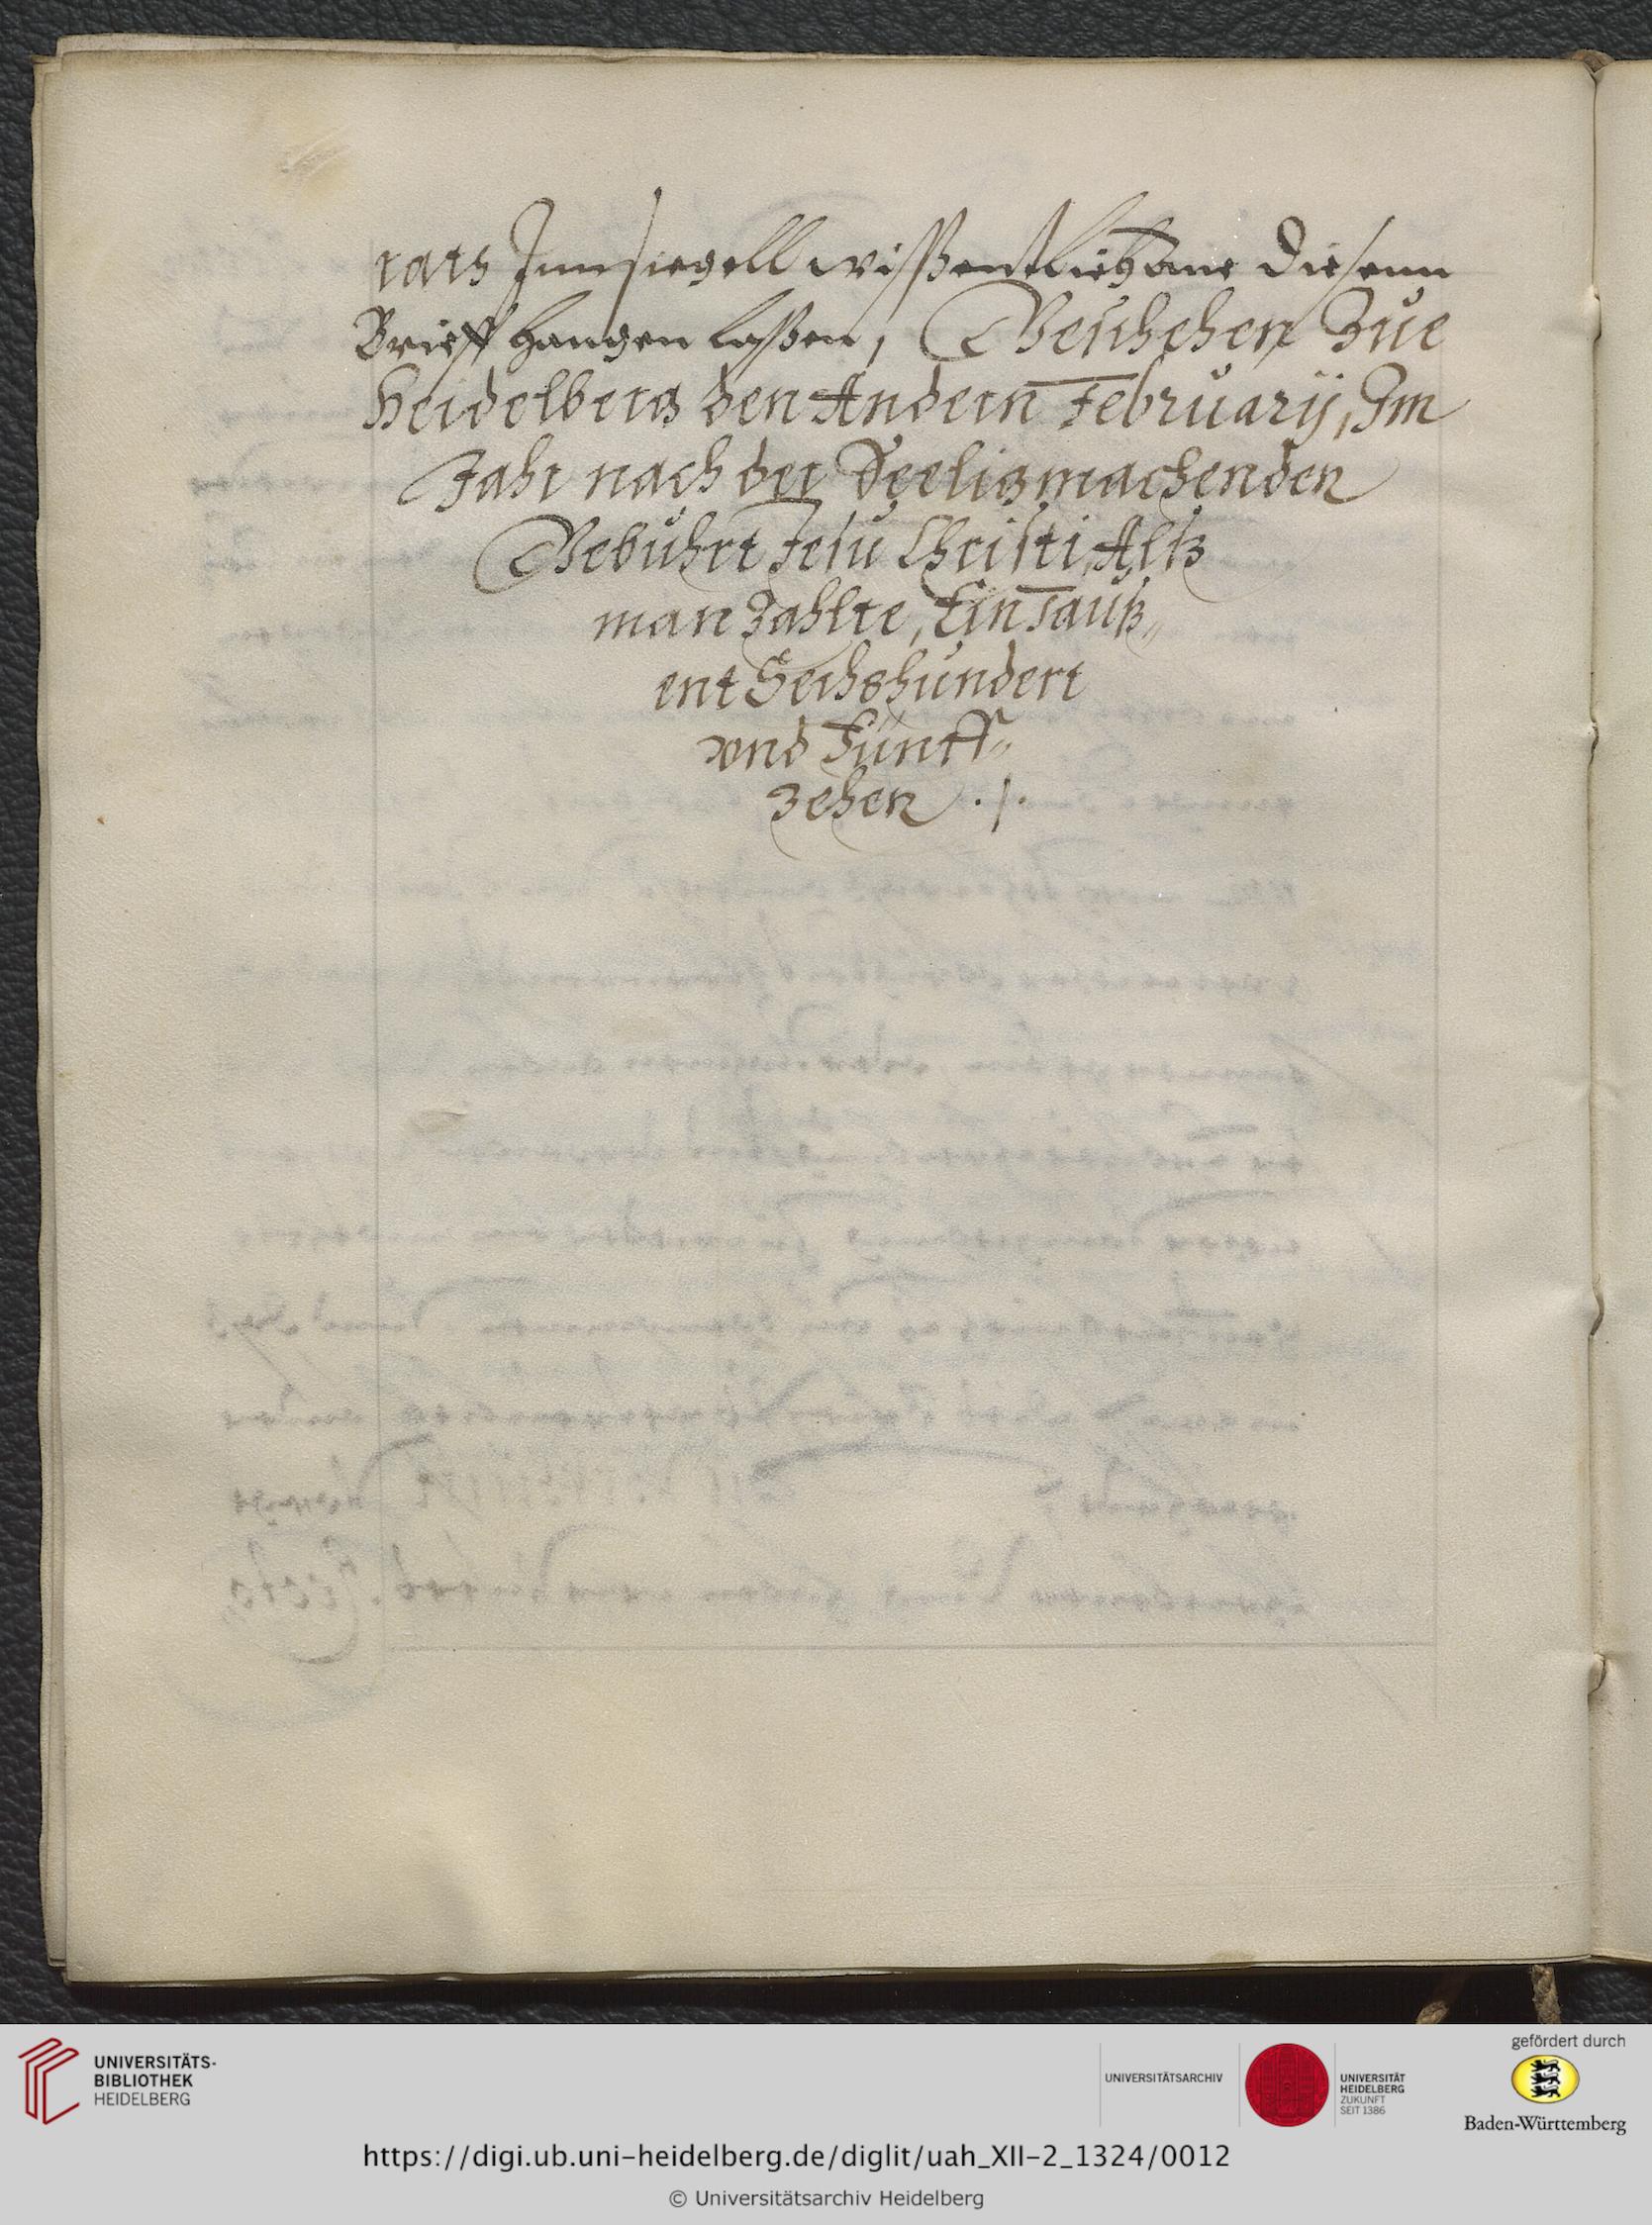 rats Innsiegell wißentlich ane diesenn
Brieff hangen laßen, Geschehen Zue
Heidelberg den Andern February, Im
Jahr nach der Seeligmachenden
Gebuhrt Jesu Christi, Alß
man Zahlte, Ein Tauß„
ent Sechshundert
vnd Fünff„
zehen ./.
UNIVERSITÄTS-
BIBLIOTHEK
HEIDELBERG
UNIVERSITÄTSARCHIV
UNIVERSITÄT
HEIDELBERG
ZUKUNFT
SEIT 1386
gefördert durch
Baden-Württemberg
https://digi.ub.uni-heidelberg.de/diglit/uah_XII-2_1324/0012
© Universitätsarchiv Heidelberg